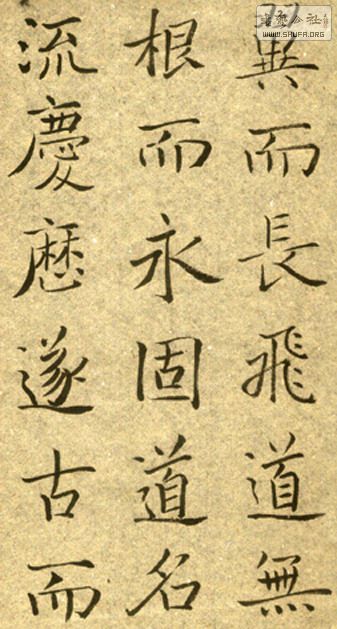 翼而長飛道無
根而永固道名
流慶歷遂古而
WWW.SHUFA.ORG